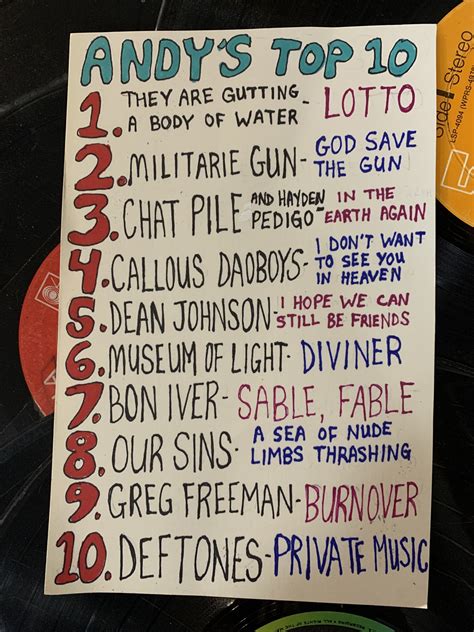 ANDY'S TOP 10
1. THEY ARE GUTTING A BODY OF WATER- LOTTO
2. MILITARIE GUN- GOD SAVE THE GUN
3. CHAT PILE AND HAYDEN PEDIGO- IN THE EARTH AGAIN
4. CALLOUS DAOBOYS- I DON'T WANT TO SEE YOU IN HEAVEN
5. DEAN JOHNSON- I HOPE WE CAN STILL BE FRIENDS
6. MUSEUM OF LIGHT- DIVINER
7. BON IVER- SABLE, FABLE
8. OUR SINS- A SEA OF NUDE LIMBS THRASHING
9. GREG FREEMAN- BURNOVER
10. DEFTONES- PRIVATE MUSIC
Side 1 Stereo